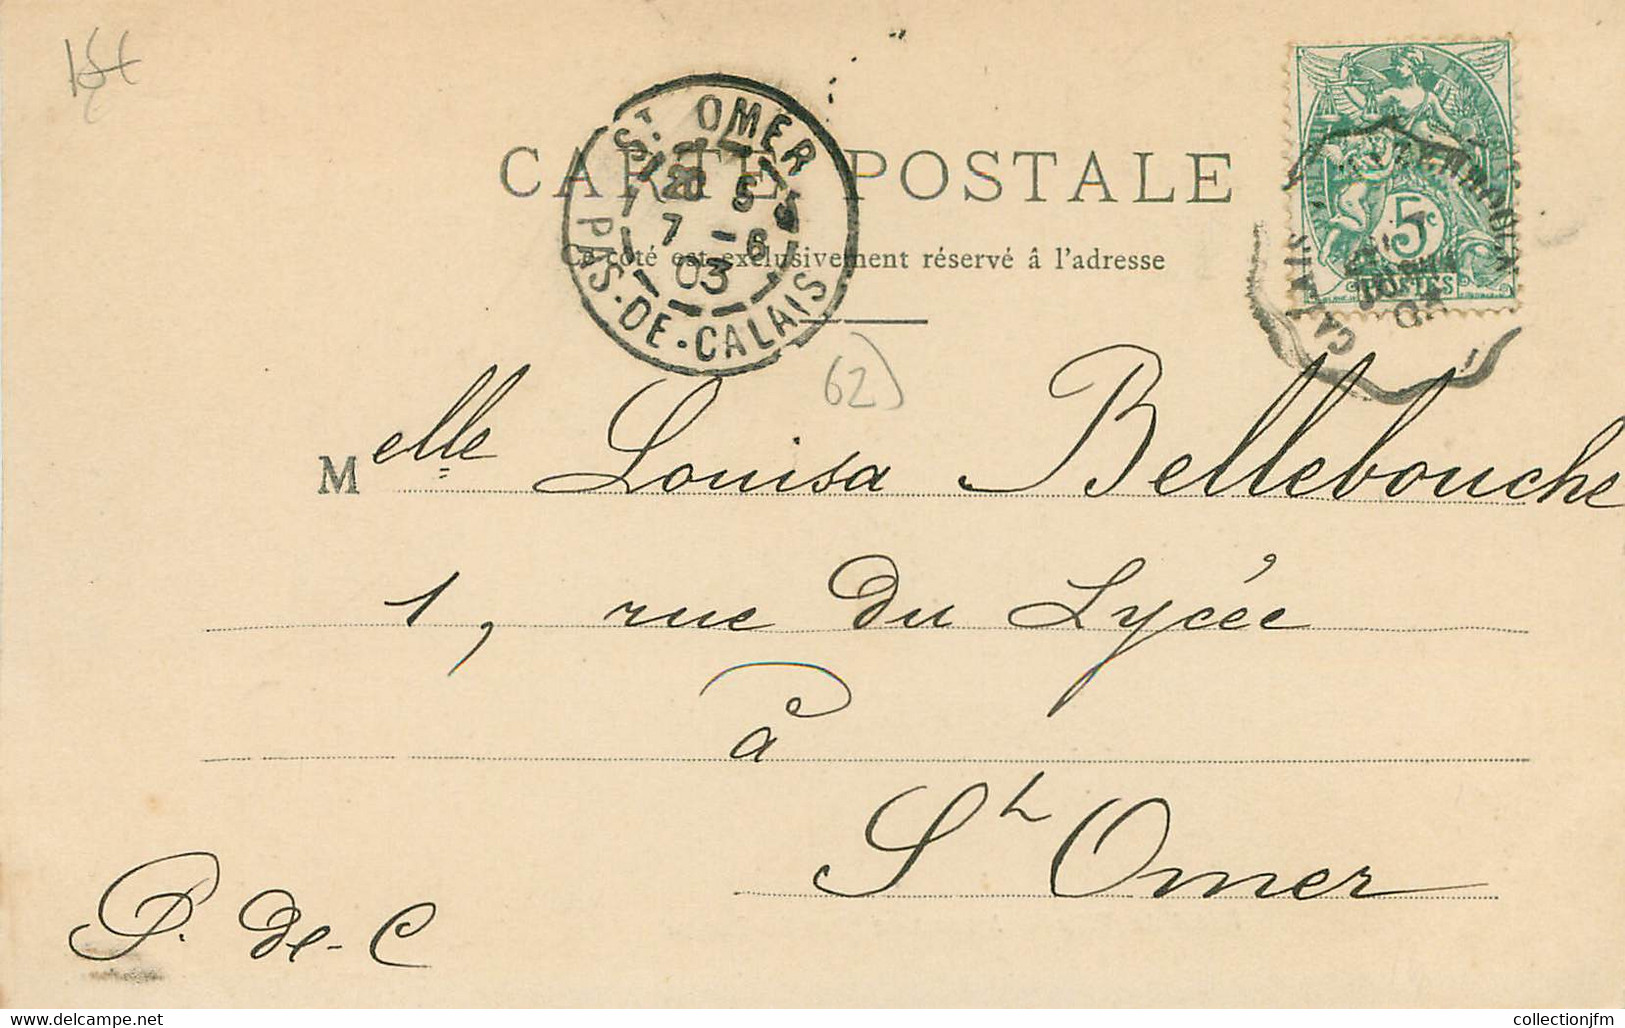 CARTE POSTALE
Ce côté est exclusivement réservé à l'adresse
ST. OMER
20 5
7 - 6
03
PAS-DE-CALAIS
5c
POSTES
CALAIS
62
Melle Louisa Bellebouche
1, rue du Lycée
à
St Omer
P. de-C
collectionjfm